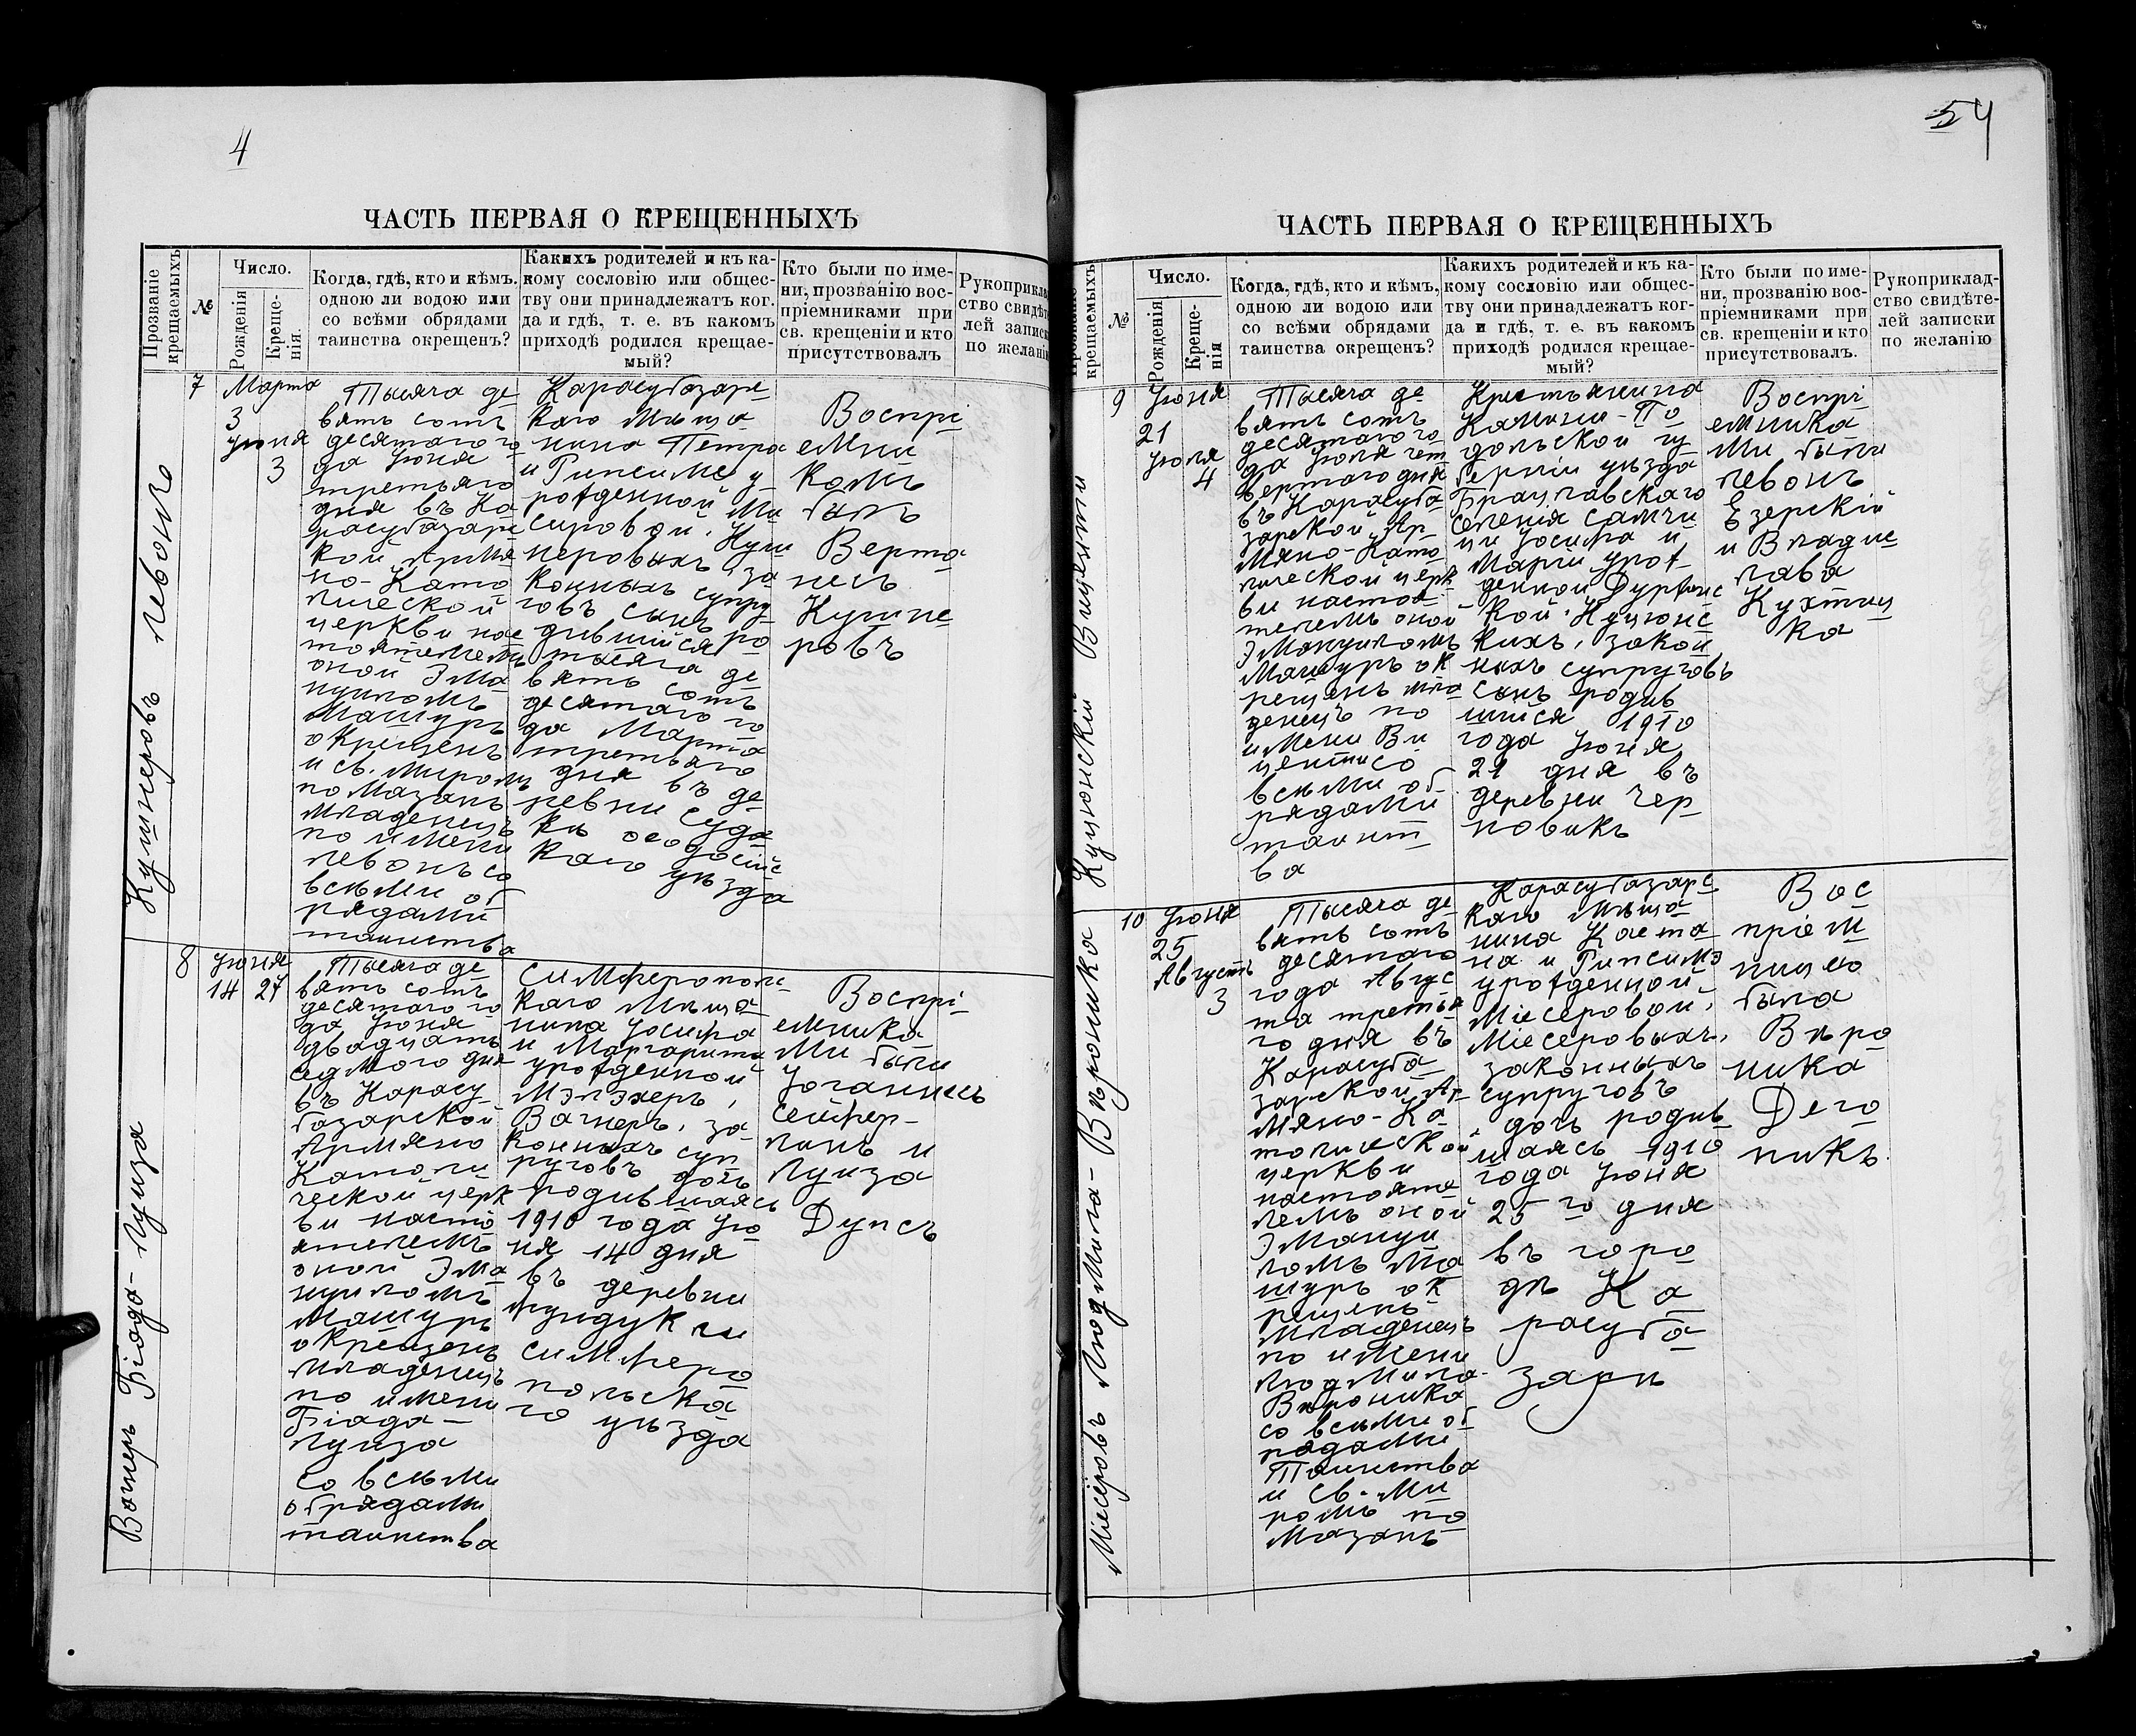 4
ЧАСТЬ ПЕРВАЯ О КРЕЩЕННЫХЪ
Прозваніе крещаемыхъ
№
Число.
Рожденія
Креще-
нія.
Когда, гдѣ, кто и кѣмъ.
одною ли водою или
со всѣми обрядами
таинства окрещенъ?
Какихъ родителей и къ ка-
кому сословію или общес-
тву они принадлежатъ ког.
да и гдѣ, т. е. въ какомъ
приходѣ родился крещае-
мый?
Кто были по име-
ни, прозванію вос-
пріемниками при
св. крещеніи и кто
присутствовалъ
Рукоприкла
ство свидѣт
лей записк
по желані
Кушнеровъ Левонъ
7
Марта
3
Іюня
3
Тысяча де
вять сотъ
десятаго го
да Іюня
третьяго
дня въ Ка
расубазарс
кой Армя
но-Като
лической
церкви нас
тоятелемъ
оной Эма
нуиломъ
Машуръ
окрещенъ
и св. Миромъ
помазанъ
младенецъ
по имени
Левонъ со
всѣми об
рядами
таинства
Карасубазарс
каго Мѣща
нина Петра
и Рипсиме у
рожденной Ми
сировой, Куш
неровыхъ, за
конныхъ супру
говъ сынъ
родившійся
тысяча де
вять сотъ
десятаго го
да Марта
третьяго
дня въ де
ревни
каго уѣзда
Воспрі
емни
комъ
былъ
Верта
несъ
Кушне
ровъ
Вагнеръ Біада-Луиза
8
Іюня
14 27
Тысяча де
вять сотъ
десятаго го
да Іюня
двадцать
седмого дня
въ Карасу
базарской
Армяно
Католи
ческой церк
ви насто
ятелемъ
оной Эма
нуиломъ
Машуръ
окрещенъ
младенецъ
по имени
Біада-
Луиза
со всѣми
обрядами
таинства
Симферополь
каго Мѣща
нина Іосифа
и Маргарита
урожденной
Мэлэхеръ,
Вагнеръ, за
конныхъ суп
руговъ дочь
родившаясь
1910 года Ію
ня 14 дня
въ деревни
Мундукъ
Симферо
польска
го уѣзда
Воспрі
емника
ми были
Іоганнесъ
Сейфер-
линъ и
Луиза
Дупсъ
54
ЧАСТЬ ПЕРВАЯ О КРЕЩЕННЫХЪ
крещаемыхъ
№
Число.
Рожденія
Креще-
нія
Когда, гдѣ, кто и кѣмъ,
одною ли водою или
со всѣми обрядами
таинства окрещенъ?
Какихъ родителей и къ ка-
кому сословію или общес-
тву они принадлежатъ ког-
да и гдѣ, т. е. въ какомъ
приходѣ родился крещае-
мый?
Кто были по име-
ни, прозванію вос-
пріемниками при
св. крещеніи и кто
присутствовалъ.
Рукоприклад-
ство свидѣте-
лей записки
по желанію
Куцюнскій Вицентій
9
Іюня
21
Іюля
4
Тысяча де
вять сотъ
десятаго го
да Іюля чет
вертаго дня
въ Карасуба
зарской Ар
мяно-Като
лической церк
ви настоя
телемъ оной
Эмануиломъ
Машуръ ок
рещенъ мла
денецъ по
имени Ви
центій со
всѣми об
рядами
таинст
ва
Крестьянина
Каменц-По
дольской гу
берніи уѣзда
Брацлавскаго
селенія Самчи
цы Іосифа и
Маріи урож
денной
кой, Куцюнс
кихъ, закон
ныхъ супруговъ
сынъ родив
шійся 1910
года Іюня
21 дня въ
деревни Чер
новикъ
Воспрі
емника
ми были
Левонъ
Езерскій
и Владис
лава
Кухтиц
ка
Місеровъ Людмила-Вѣроника
10
Іюня
25
Августъ
3
Тысяча де
вять сотъ
десятаго
года Авгус
та третья
го дня въ
Карасуба
зарской Ар
мяно-Ка
толической
церкви
настояте
лемъ оной
Эмануи
ломъ Ма
шуръ ок
рещенъ
младенецъ
по имени
Людмила-
Вѣроника
со всѣми об
рядами
Таинства
и св. Ми
ромъ по
мазанъ
Карасубазарс
каго Мѣща
нина Каета
на и Рипсимэ
урожденной
Місеровой,
Місеровыхъ,
законныхъ
супруговъ
дочь родив
шаясь 1910
года Іюня
25 го дня
въ горо
дѣ Ка
расуба
зарѣ
Вос
пріем
ницею
была
Вѣро
ника
Дего
никъ